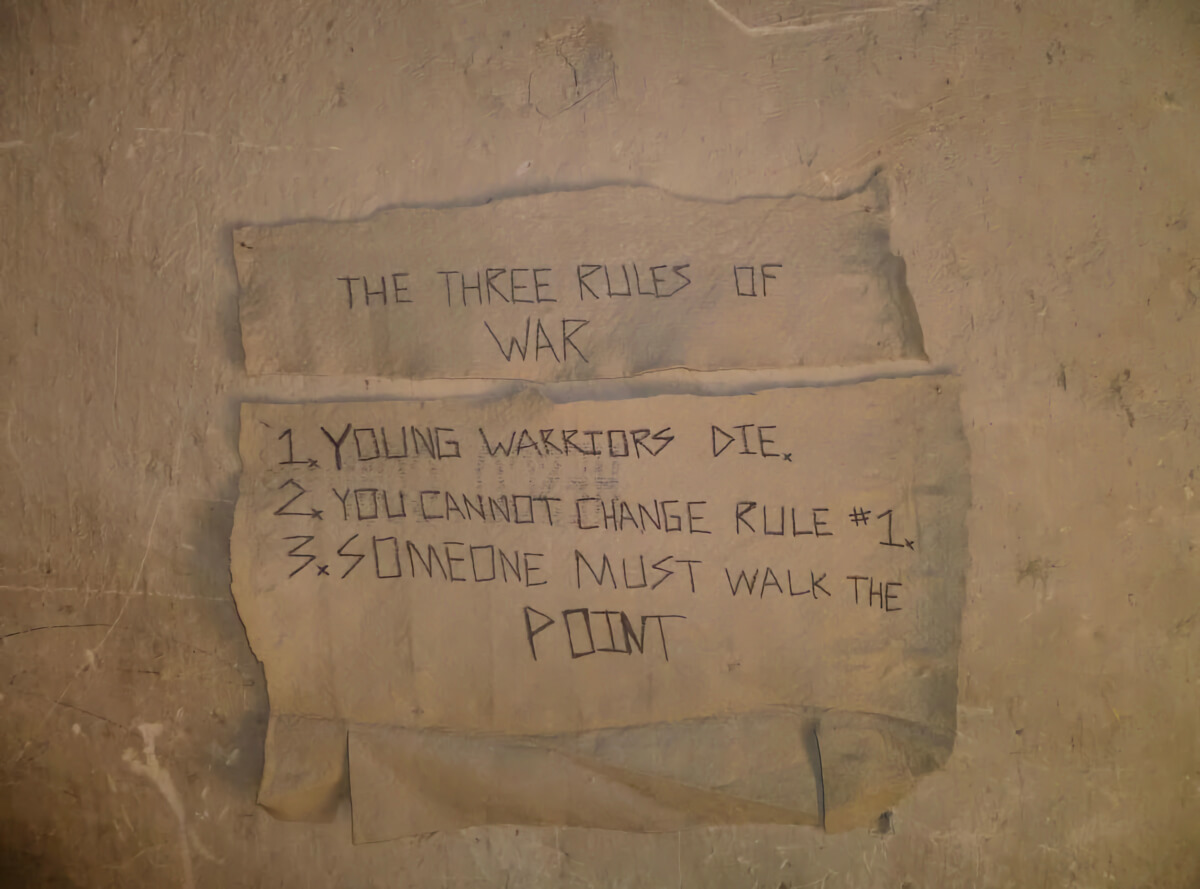 THE THREE RULES OF
WAR
1. YOUNG WARRIORS DIE.
2. YOU CANNOT CHANGE RULE #1.
3. SOMEONE MUST WALK THE
POINT